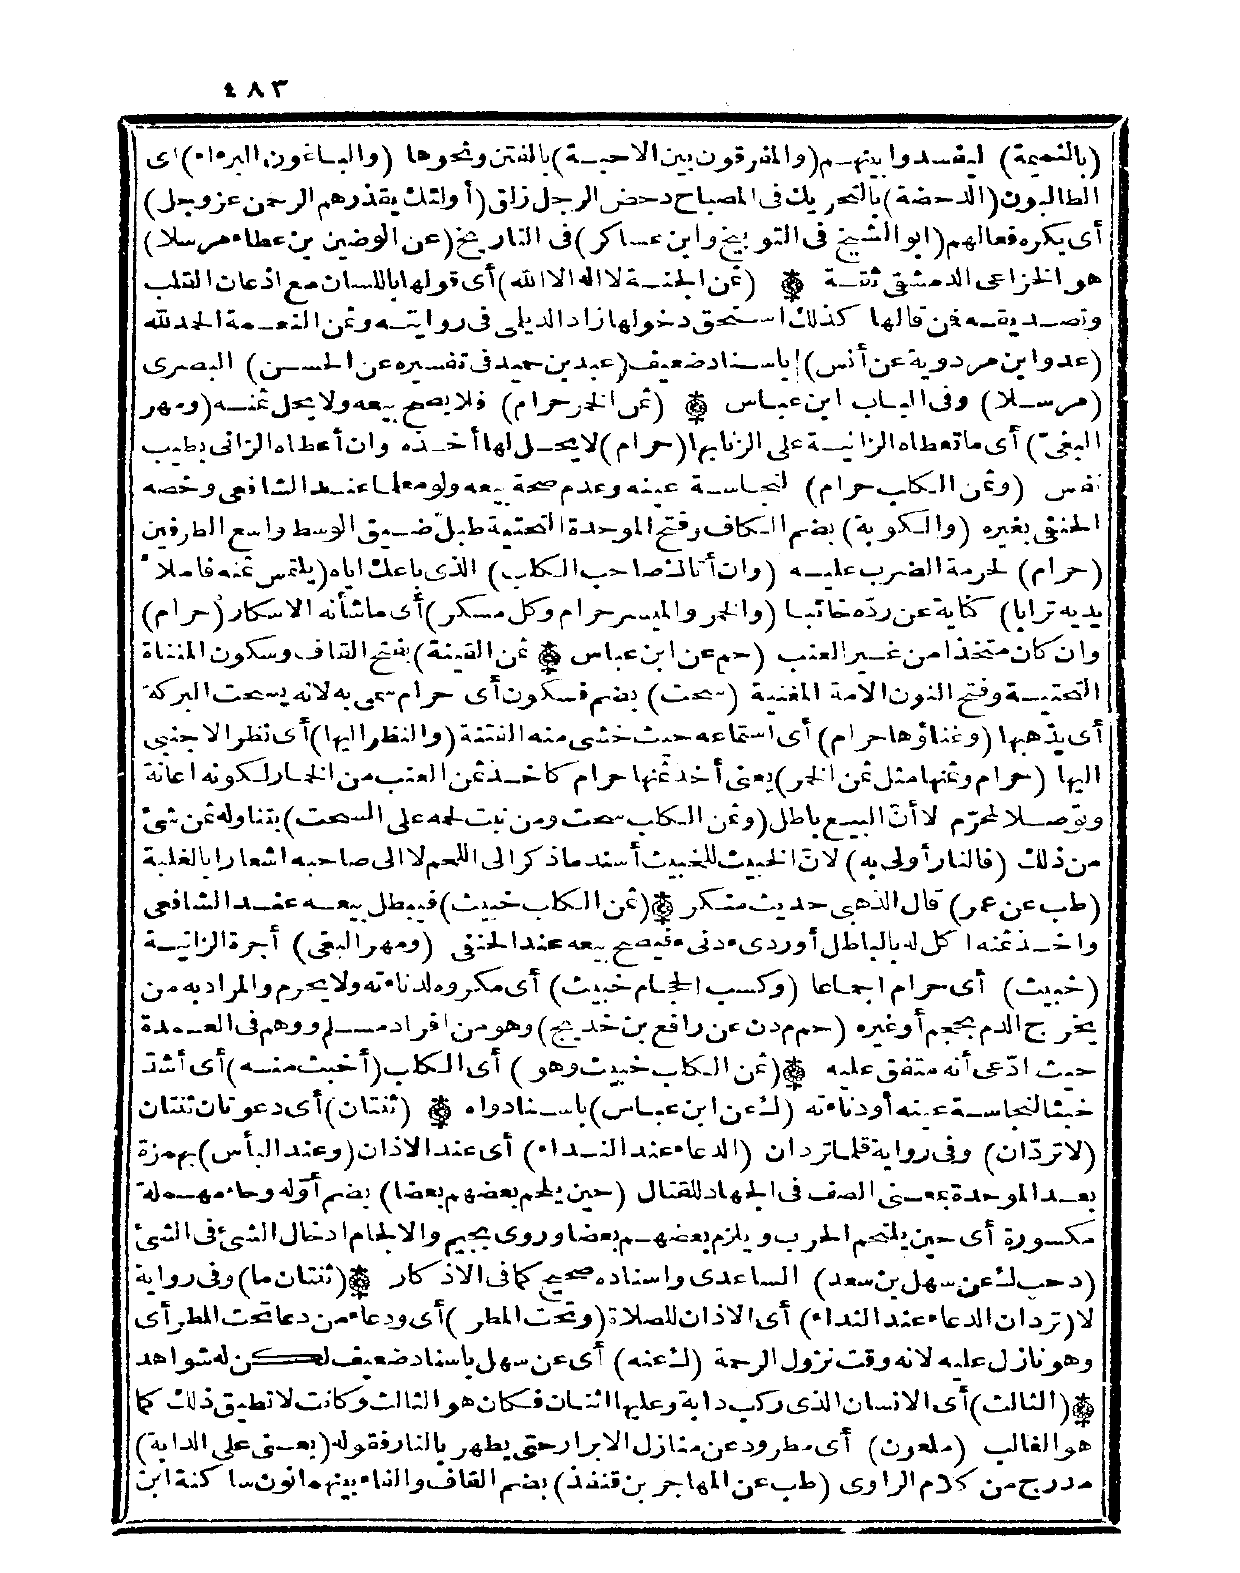 ٤٨٣
(بالنميمة) ليفسدوا بينهم (والمفرقون بين الاحبة) بالفتن ونحوها (والباغون البرءاء) أى
الطالبون (الدحضة) بالتحريك فى المصباح دحض الرجل زلق (أولئك يقذرهم الرحمن عزوجل)
أى يكره فعالهم (ابو الشيخ فى التوبيخ وابن عساكر) فى التاريخ (عن الوضين بن عطاء مرسلا)
هو الخزاعى الدمشقى ثقة ۞ (ثمن الجنة لا اله الا الله) أى قولها باللسان مع اذعان القلب
وتصديقه فمن قالها كذلك استحق دخولها زاد الديلى فى روايته وثمن النعمة الحمد لله
(عد وابن مردوية عن أنس) باسناد ضعيف (عبد بن حميد فى تفسيره عن الحسن) البصرى
(مرسلا) وفى الباب ابن عباس ۞ (ثمن الخمر حرام) فلا يصح بيعه ولا يحل ثمنه (ومهر
البغىّ) أى ما تعطاه الزانية على الزنا بها (حرام) لا يحل لها أخذه وان أعطاه الزانى بطيب
نفس (وثمن الكلب حرام) لنجاسة عينه وعدم صحة بيعه ولو معلما عند الشافعى وخصه
الحنفى بغيره (والكوبة) بضم الكاف وفتح الموحدة التحتية طبل ضيق الوسط واسع الطرفين
(حرام) لحرمة الضرب عليه (وان أتاك صاحب الكلب) الذى باعك اياه (يلتمس ثمنه فاملأ
يديه ترابا) كناية عن ردّه خائبا (والخمر والميسر حرام وكل مسكر) أى ما شأنه الاسكار (حرام)
وان كان متخذا من غير العنب (حم عن ابن عباس ۞ ثمن القينة) بفتح القاف وسكون المثناة
التحتية وفتح النون الامة المغنية (سحت) بضم فسكون أى حرام سمى به لانه يسحت البركة
أى يذهبها (وغناؤها حرام) أى استماعه حيث خشى منه الفتنة (والنظر اليها) أى نظر الاجنبى
اليها (حرام وثمنها مثل ثمن الخمر) يعنى أخذ ثمنها حرام كاخذ ثمن العنب من الخمار لكونه اعانة
وتوصلا لمحرّم لا أنّ البيع باطل (وثمن الكلب سحت ومن نبت لحمه على السحت) بتناوله ثمن شئ
من ذلك (فالنار أولى به) لانّ الخبيث للخبيث أسند ماذكر الى اللحم لا الى صاحبه اشعارا بالغلبة
(طب عن عمر) قال الذهبى حديث منكر ۞ (ثمن الكلب خبيث) فيبطل بيعه عند الشافعى
وأخذ ثمنه اكل له بالباطل أو ردىء دنىء فيصح بيعه عند الحنفى (ومهر البغى) أجرة الزانية
(خبيث) أى حرام اجماعا (وكسب الحجام خبيث) أى مكروه لدناءته ولا يحرم والمراد به من
يخرج الدم بحجم أو غيره (حم م د ت عن رافع بن خديج) وهو من افراد مسلم ووهم فى العمدة
حيث ادّعى أنه متفق عليه ۞ (ثمن الكلب خبيث وهو) أى الكلب (أخبث منه) أى أشدّ
خبثا لنجاسة عينه أو دناءته (ك عن ابن عباس) باسناد واه ۞ (ثنتان) أى دعوتان ثنتان
(لا تردّان) وفى رواية قلما تردان (الدعاء عند النداء) أى عند الاذان (وعند البأس) بهمزة
بعد الموحدة بمعنى الصف فى الجهاد للقتال (حين يلحم بعضهم بعضا) بضم أوّله وحاء مهملة
مكسورة أى حين يلتحم الحرب ويلزم بعضهم بعضا وروى بجيم والالجام ادخال الشئ فى الشئ
(د حب ك عن سهل بن سعد) الساعدى واسناده صحيح كما فى الاذكار ۞ (ثنتان ما) وفى رواية
لا (تردان الدعاء عند النداء) أى الاذان للصلاة (وتحت المطر) أى ودعاء من دعا تحت المطر أى
وهو نازل عليه لانه وقت نزول الرحمة (ك عنه) أى عن سهل باسناد ضعيف لكن له شواهد
۞ (الثالث) أى الانسان الذى ركب دابة وعليها اثنان فكان هو الثالث وكانت لا تطيق ذلك كما
هو الغالب (ملعون) أى مطرود عن منازل الابرار حتى يطهر بالنار فقوله (يعنى على الدابة)
مدرج من كلام الراوى (طب عن المهاجر بن قنفذ) بضم القاف والفاء بينهما نون ساكنة ابن